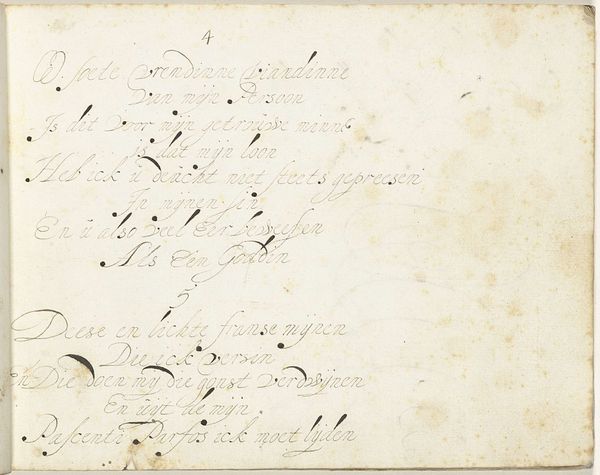 4
O. soete vrendinne viandinne
van mijn Persoon
Is dit voor mijn getrouwe minne
is dat mijn loon
Heb ick u deucht niet steets gepreesen
In mijnen sin
En u also veel Eer beweesen
Als Een Goddin
5
Deese en lichte franse mijnen
Die ick
En Die doen mij die gonst verdwijnen
En uijt de mijn
ick moet lijden